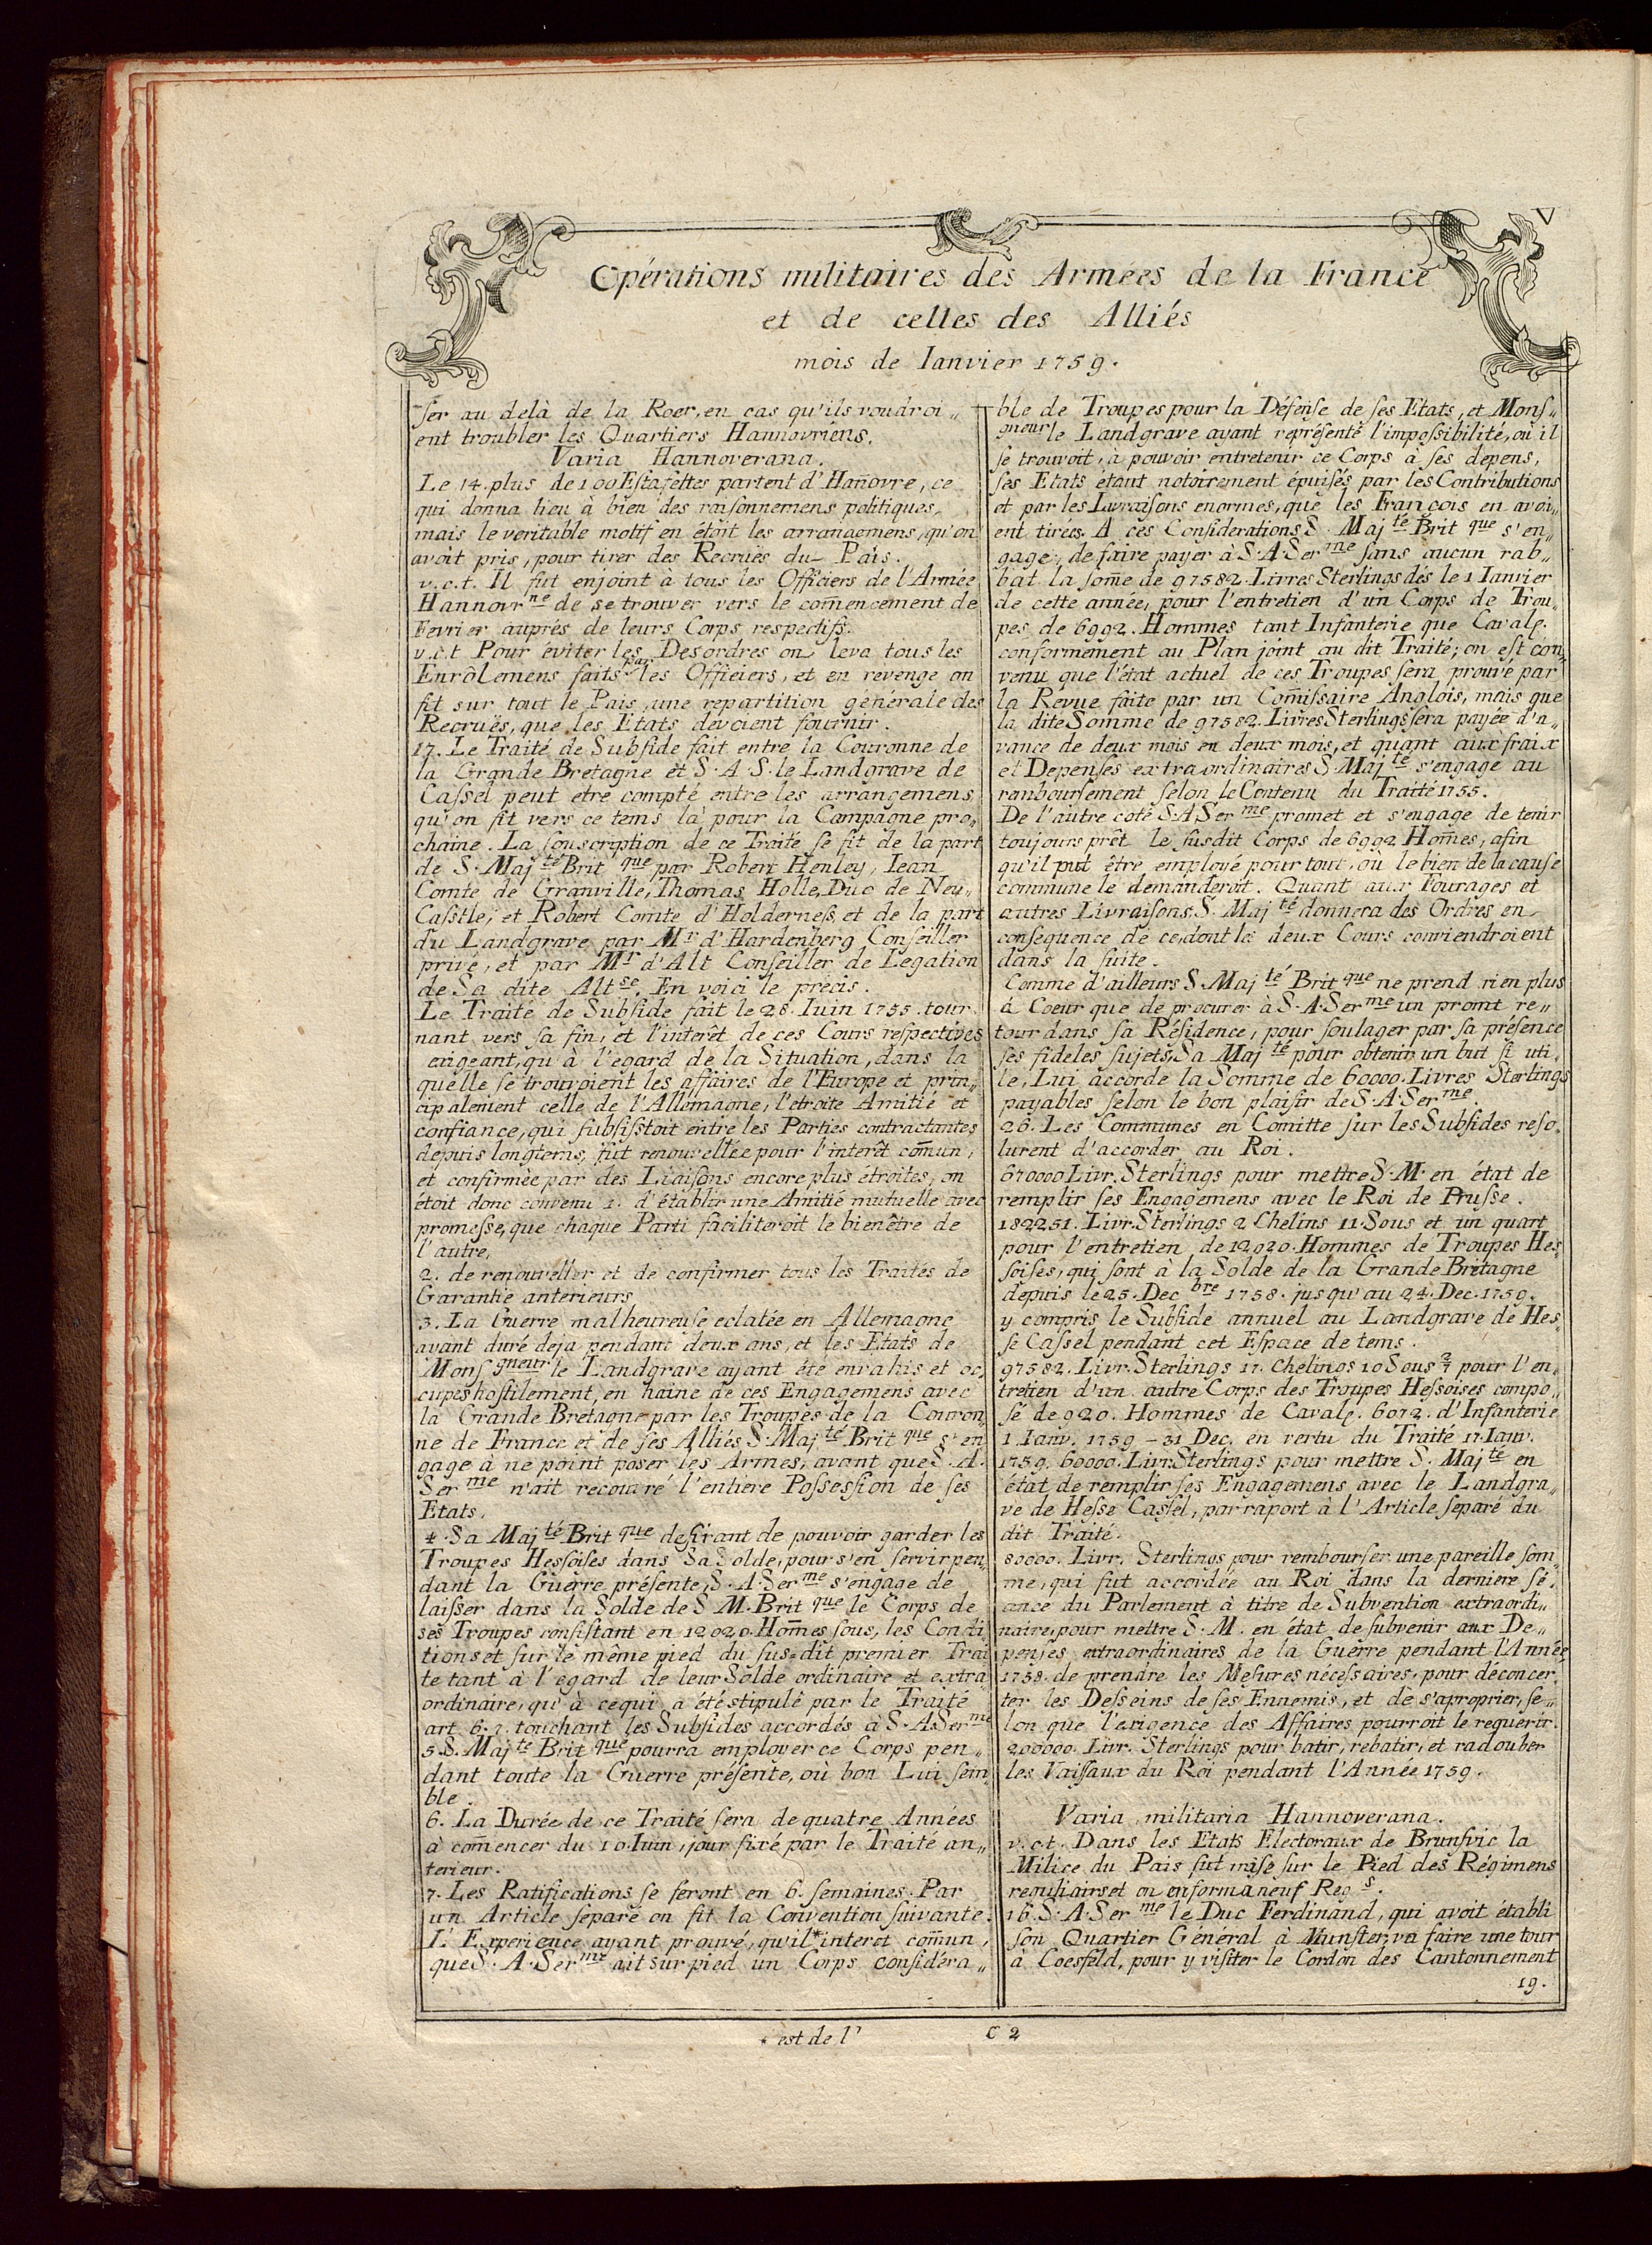 V
Opérations militaires des Armées de la France
et de celles des Alliés
mois de Ianvier 1759.
ser au delà de la Roer, en cas qu'ils voudroi„
ent troubler les Quartiers Hannovriens.
Varia Hannoverana.
Le 14. plus de 100 Estafettes partent d'Hañovre, ce
qui donna lieu à bien des raisonnemens politiques,
mais le veritable motif en étoit les arrangemens, qu'on
avoit pris, pour tirer des Recruës du Païs.
v.c.t. Il fut enjoint à tous les Officiers de l'Armée
Hannovrne de se trouver vers le com̄encement de
Fevrier auprés de leurs Corps respectifs.
v.c.t Pour eviter les Desordres on leva tous les
Enrôlemens faits par les Officiers, et en revenge on
fit sur tout le Païs, une repartition générale des
Recruës, que les Etats devoient fournir.
17. Le Traité de Subside fait entre la Couronne de
la Grande Bretagne et S. A. S. le Landgrave de
Cassel peut etre compté entre les arrangemens
qu'on fit vers ce tems là pour la Campagne pro„
chaine. La souscription de ce Traité se fit de la part
de S. Majté Britque par Robert Henley, Iean
Comte de Granville, Thomas Holle, Duc de Neu„
Casstle, et Robert Comte d'Holderness, et de la part
du Landgrave par Mr d'Hardenberg Conseiller
privé, et par Mr d'Alt Conseiller de Legation
de Sa dite Altse. En voici le précis.
Le Traité de Subside fait le 28. Iuin 1755. tour
nant vers sa fin, et l'interêt de ces Cours respectives
exigeant, qu'à l'egard de la Situation, dans la
quelle se trouvoient les affaires de l'Europe et prin„
cipalement celle de l'Allemagne, l'etroite Amitié et
confiance, qui subsistoit entre les Parties contractantes
depuis longtems, fut renouvellée pour l'interêt com̄un,
et confirmée par des Liaisons encore plus étroites, on
étoit donc convenu 1. d'établir une Amitié mutuelle avec
promesse, que chaque Parti faciliteroit le bienêtre de
l'autre,
2. de renouveller et de confirmer tous les Traités de
Garantie anterieurs
3. La Guerre malheureuse eclatée en Allemagne
ayant duré deja pendant deux ans, et les Etats de
Monsgneur le Landgrave ayant été envahis et oc„
cupes hostilement, en haine de ces Engagemens avec
la Grande Bretagne par les Troupes de la Couron„
ne de France et de ses Alliés S. Majté Britque s'en
gage à ne point poser les Armes, avant que S. A.
Serme n'ait recouvré l'entiere Possession de ses
Etats.
4. Sa Majté Britque desirant de pouvoir garder les
Troupes Hessoises dans Sa Solde, pour s'en servir pen„
dant la Guerre présente, S. A. Serme s'engage de
laisser dans la Solde de S M. Britque le Corps de
ses Troupes consistant en 12020. Hom̄es sous, les Condi„
tions et sur le même pied du sus=dit premier Trai
te tant à l'egard de leur Solde ordinaire et extra
ordinaire, qu'à cequi a été stipulé par le Traité
art 6. 7. touchant les Subsides accordés à S. A Serme
5. S. Majte Britque pourra employer ce Corps pen„
dant toute la Guerre présente, où bon Lui sem„
ble.
6. La Durée de ce Traité sera de quatre Années
à com̄encer du 10. Iuin, jour fixé par le Traité an„
terieur.
7. Les Ratifications se feront en 6. semaines. Par
un Article separé on fit la Convention suivante.
L'Experience ayant prouvé, qu'il*interet com̄un,
que S. A. Serme ait sur pied un Corps considéra„
ble de Troupes pour la Défense de ses Etats, et Mons„
gneur le Landgrave ayant représenté l'impossibilité, où il
se trouvoit, à pouvoir entretenir ce Corps à ses depens,
ses Etats étant notoirement épuisés par les Contributions
et par les Livraisons enormes, que les François en avoi„
ent tirées. A ces Considerations S. Majté Britque s'en
gage, de faire payer à S. A. Serme sans aucun rab„
bat la som̄e de 97582. Livres Sterlings dés le 1 Ianvier
de cette année, pour l'entretien d'un Corps de Trou„
pes de 6992. Hommes tant Infanterie que Cavale.
conformement au Plan joint au dit Traité; on est con„
venu que l'état actuel de ces Troupes sera prouvé par
la Révue faite par un Com̄issaire Anglois, mais que
la dite Somme de 97582. Livres Sterlings sera payée d'a„
vance de deux mois en deux mois, et quant aux fraix
et Depenses extraordinaires S. Majté s'engage au
remboursement selon le Contenu du Traité 1755.
De l'autre coté S. A Serme promet et s'engage de tenir
toujours prêt le susdit Corps de 6992 Hom̄es, afin
qu'il put être employé pour tout, où le bien de la cause
commune le demanderoit. Quant aux Fourages et
autres Livraisons S. Majté donnera des Ordres en
consequence de ce, dont les deux Cours conviendroient
dans la suite.
Comme d'ailleurs S. Majté Britque ne prend rien plus
à Coeur que de procurer à S. A. Serme un promt re„
tour dans sa Résidence, pour soulager par sa présence
ses fideles sujets, Sa Majté pour obtenir un but si uti„
le, Lui accorde la Somme de 60000. Livres Sterlings
payables selon le bon plaisir de S. A. Serme.
26. Les Communes en Comitte sur les Subsides reso„
lurent d'accorder au Roi.
670000 Livr. Sterlings pour mettre S. M. en état de
remplir ses Engagemens avec le Roi de Prusse.
182251. Livr. Sterlings 2 Chelins 11. Sous et un quart
pour l'entretien de 12020. Hommes de Troupes Hes„
soises, qui sont à la Solde de la Grande Brétagne
depuis le 25. Decbre 1758. jusqu'au 24. Dec. 1759.
y compris le Subside annuel au Landgrave de Hes„
se Cassel pendant cet Espace de tems.
97582. Livr. Sterlings 17. Chelings 10 Sous 2/7 pour l'en„
tretien d'un autre Corps des Troupes Hessoises compo„
sé de 920. Hommes de Caval. 6072. d'Infanterie
1 Ianv. 1759 – 31 Dec. en vertu du Traité 17. Ianv.
1759. 60000. Livr. Sterlings pour mettre S. Majté en
état de remplir ses Engagemens avec le Landgra„
ve de Hesse Cassel, par raport à l'Article separé du
dit Traité.
80000. Livr. Sterlings pour rembourser une pareille som„
me, qui fut accordée au Roi dans la derniere sé„
ance du Parlement à titre de Subvention extraordi„
naire, pour mettre S. M. en état de subvenir aux De„
penses extraordinaires de la Guerre pendant l'Année
1758. de prendre les Mesures nécessaires, pour déconcer„
ter les Desseins de ses Ennemis, et de s'aproprier, se„
lon que l'exigence des Affaires pourroit le requerir.
200000. Livr. Sterlings pour batir, rebatir, et radouber
les Vaissaux du Roi pendant l'Année 1759.
Varia militaria Hannoverana.
v.c.t. Dans les Etats Electoraux de Brunsvic la
Milice du Pais fut mise sur le Pied des Régimens
reguliairs et on en forma neuf Regs.
16. S. A. Serme le Duc Ferdinand, qui avoit établi
son Quartier Général à Munster, va faire une tour
à Coesfeld, pour y visiter le Cordon des Cantonnement
19.
* est de l'
C 2